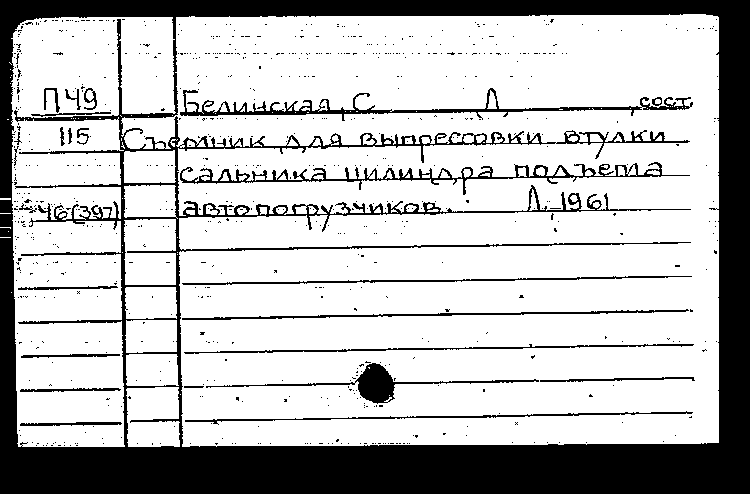 П49 Белинская, С Л , сост.
115 Съемник для выпрессовки втулки
сальника цилиндра подъема
46(397) автопогрузчиков. Л, 1961